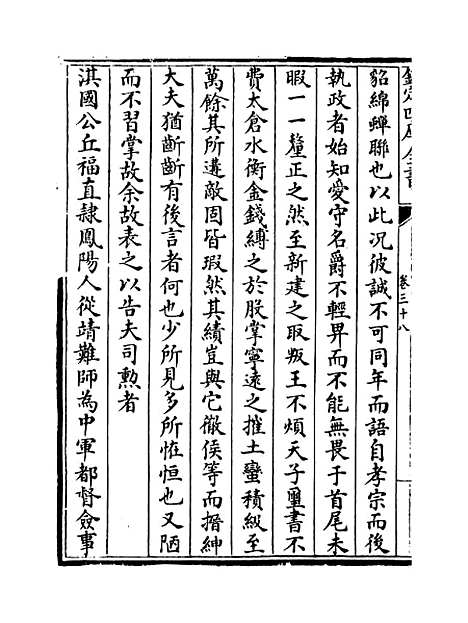 欽定四庫全書
卷三十八
貂綿蟬聯也以此况彼誠不可同年而語自孝宗而後
執政者始知愛守名爵不輕畀而不能無畏于首尾未
暇一一釐正之然至新建之取叛王不煩天子璽書不
費太倉水衡金錢縛之於股掌寧遠之摧土蠻積級至
萬餘其所遘敵固皆瑕然其績豈與它徹侯等而搢紳
大夫猶齗齗有後言者何也少所見多所恠恒也又陋
而不習掌故余故表之以告夫司勲者
淇國公丘福直隸鳳陽人從靖難師為中軍都督僉事